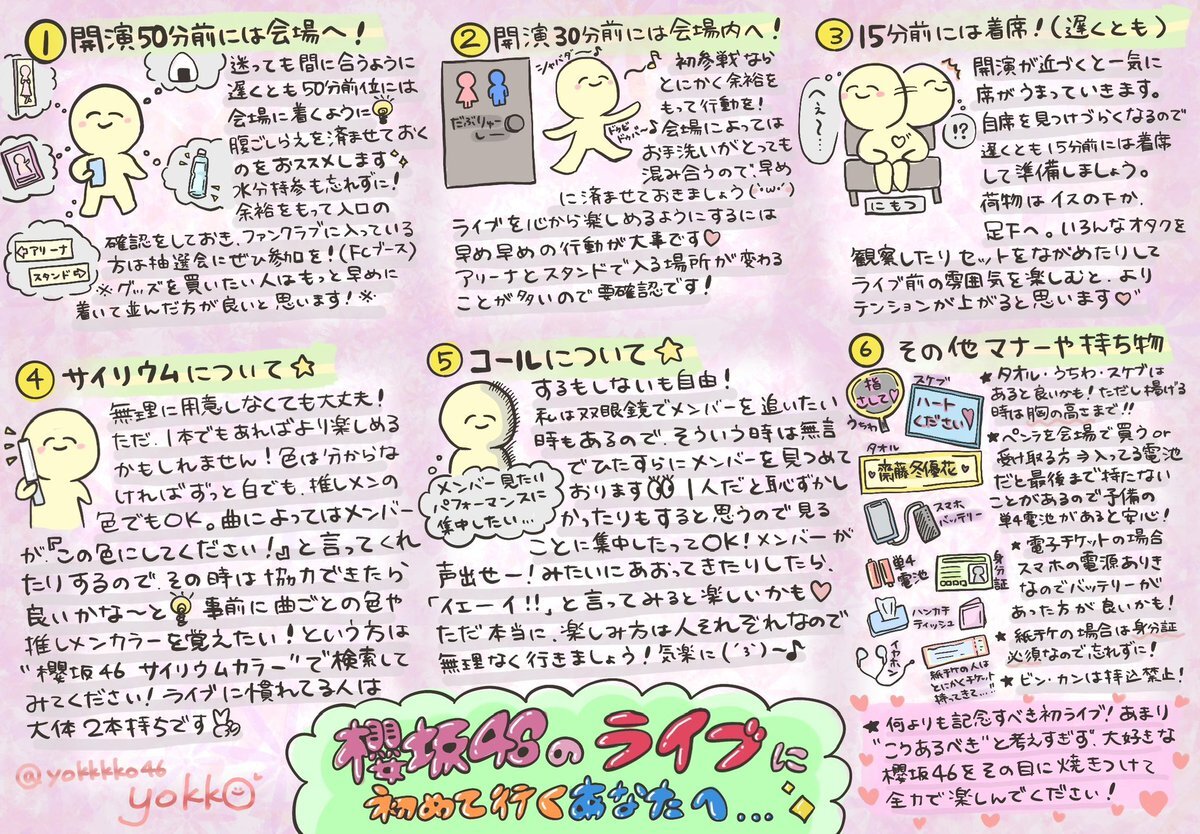 ① 開演50分前には会場へ!
迷っても間に合うように
遅くとも50分前位には
会場に着くように
腹ごしらえを済ませておく
のをおススメします
水分持参も忘れずに!
余裕をもって入口の
確認をしておき、ファンクラブに入っている
方は抽選会にぜひ参加を!(FCブース)
※グッズを買いたい人はもっと早めに
着いて並んだ方が良いと思います!※
⇦アリーナ
スタンド⇨
② 開演30分前には会場内へ!
シャバダ〜
だぶりゅー
しー
ドゥビ
ドゥバー♪
初参戦なら
とにかく余裕を
もって行動を!
会場によっては
お手洗いがとっても
混み合うので、早め
に済ませておきましょう(･ω･´)
ライブを心から楽しめるようにするには
早め早めの行動が大事です♡
アリーナとスタンドで入る場所が変わる
ことが多いので要確認です!
③ 15分前には着席!(遅くとも)
へぇ〜…
!?
にもつ
開演が近づくと一気に
席がうまっていきます。
自席を見つけづらくなるので
遅くとも15分前には着席
して準備しましょう。
荷物はイスの下か、
足下へ。いろんなオタクを
観察したりセットをながめたりして
ライブ前の雰囲気を楽しむと、より
テンションが上がると思います♡
④ サイリウムについて☆
無理に用意しなくても大丈夫!
ただ、1本でもあればより楽しめる
かもしれません!色は分からな
ければずっと白でも、推しメンの
色でもOK。曲によってはメンバー
が『この色にしてください!』と言ってくれ
たりするので、その時は協力できたら
良いかな〜と 事前に曲ごとの色や
推しメンカラーを覚えたい!という方は
"櫻坂46 サイリウムカラー"で検索して
みてください!ライブに慣れてる人は
大体2本持ちです
⑤ コールについて☆
するもしないも自由!
私は双眼鏡でメンバーを追いたい
時もあるので、そういう時は無言
でひたすらにメンバーを見つめて
おります 1人だと恥ずかし
かったりもすると思うので見る
ことに集中したってOK!メンバーが
声出せー!みたいにあおってきたりしたら、
「イェーイ!!」と言ってみると楽しいかも♡
ただ本当に、楽しみ方は人それぞれなので
無理なく行きましょう!気楽に(´３`)〜♪
メンバー見たい
パフォーマンスに
集中したい…
⑥ その他マナーや持ち物
指
さして♡
うちわ
スケブ
ハート
ください
タオル
♡齋藤冬優花♡
スマホ
バッテリー
単4
電池
身分証
ハンカチ
ティッシュ
イヤホン
紙チケの人は
とにかくチケット
持ってきて…!!
★タオル・うちわ・スケブは
あると良いかも!ただし掲げる
時は胸の高さまで!!
★ペンラを会場で買うor
受け取る方⇒入ってる電池
だと最後まで持たない
ことがあるので予備の
単4電池があると安心!
★電子チケットの場合
スマホの電源ありき
なのでバッテリーが
あった方が良いかも!
★紙チケの場合は身分証
必須なので忘れずに!
★ビン・カンは持込禁止!
★何よりも記念すべき初ライブ!あまり
"こうあるべき"と考えすぎず、大好きな
櫻坂46をその目に焼きつけて
全力で楽しんでください!
櫻坂46のライブに
初めて行くあなたへ…
@yokkkko46
yokko